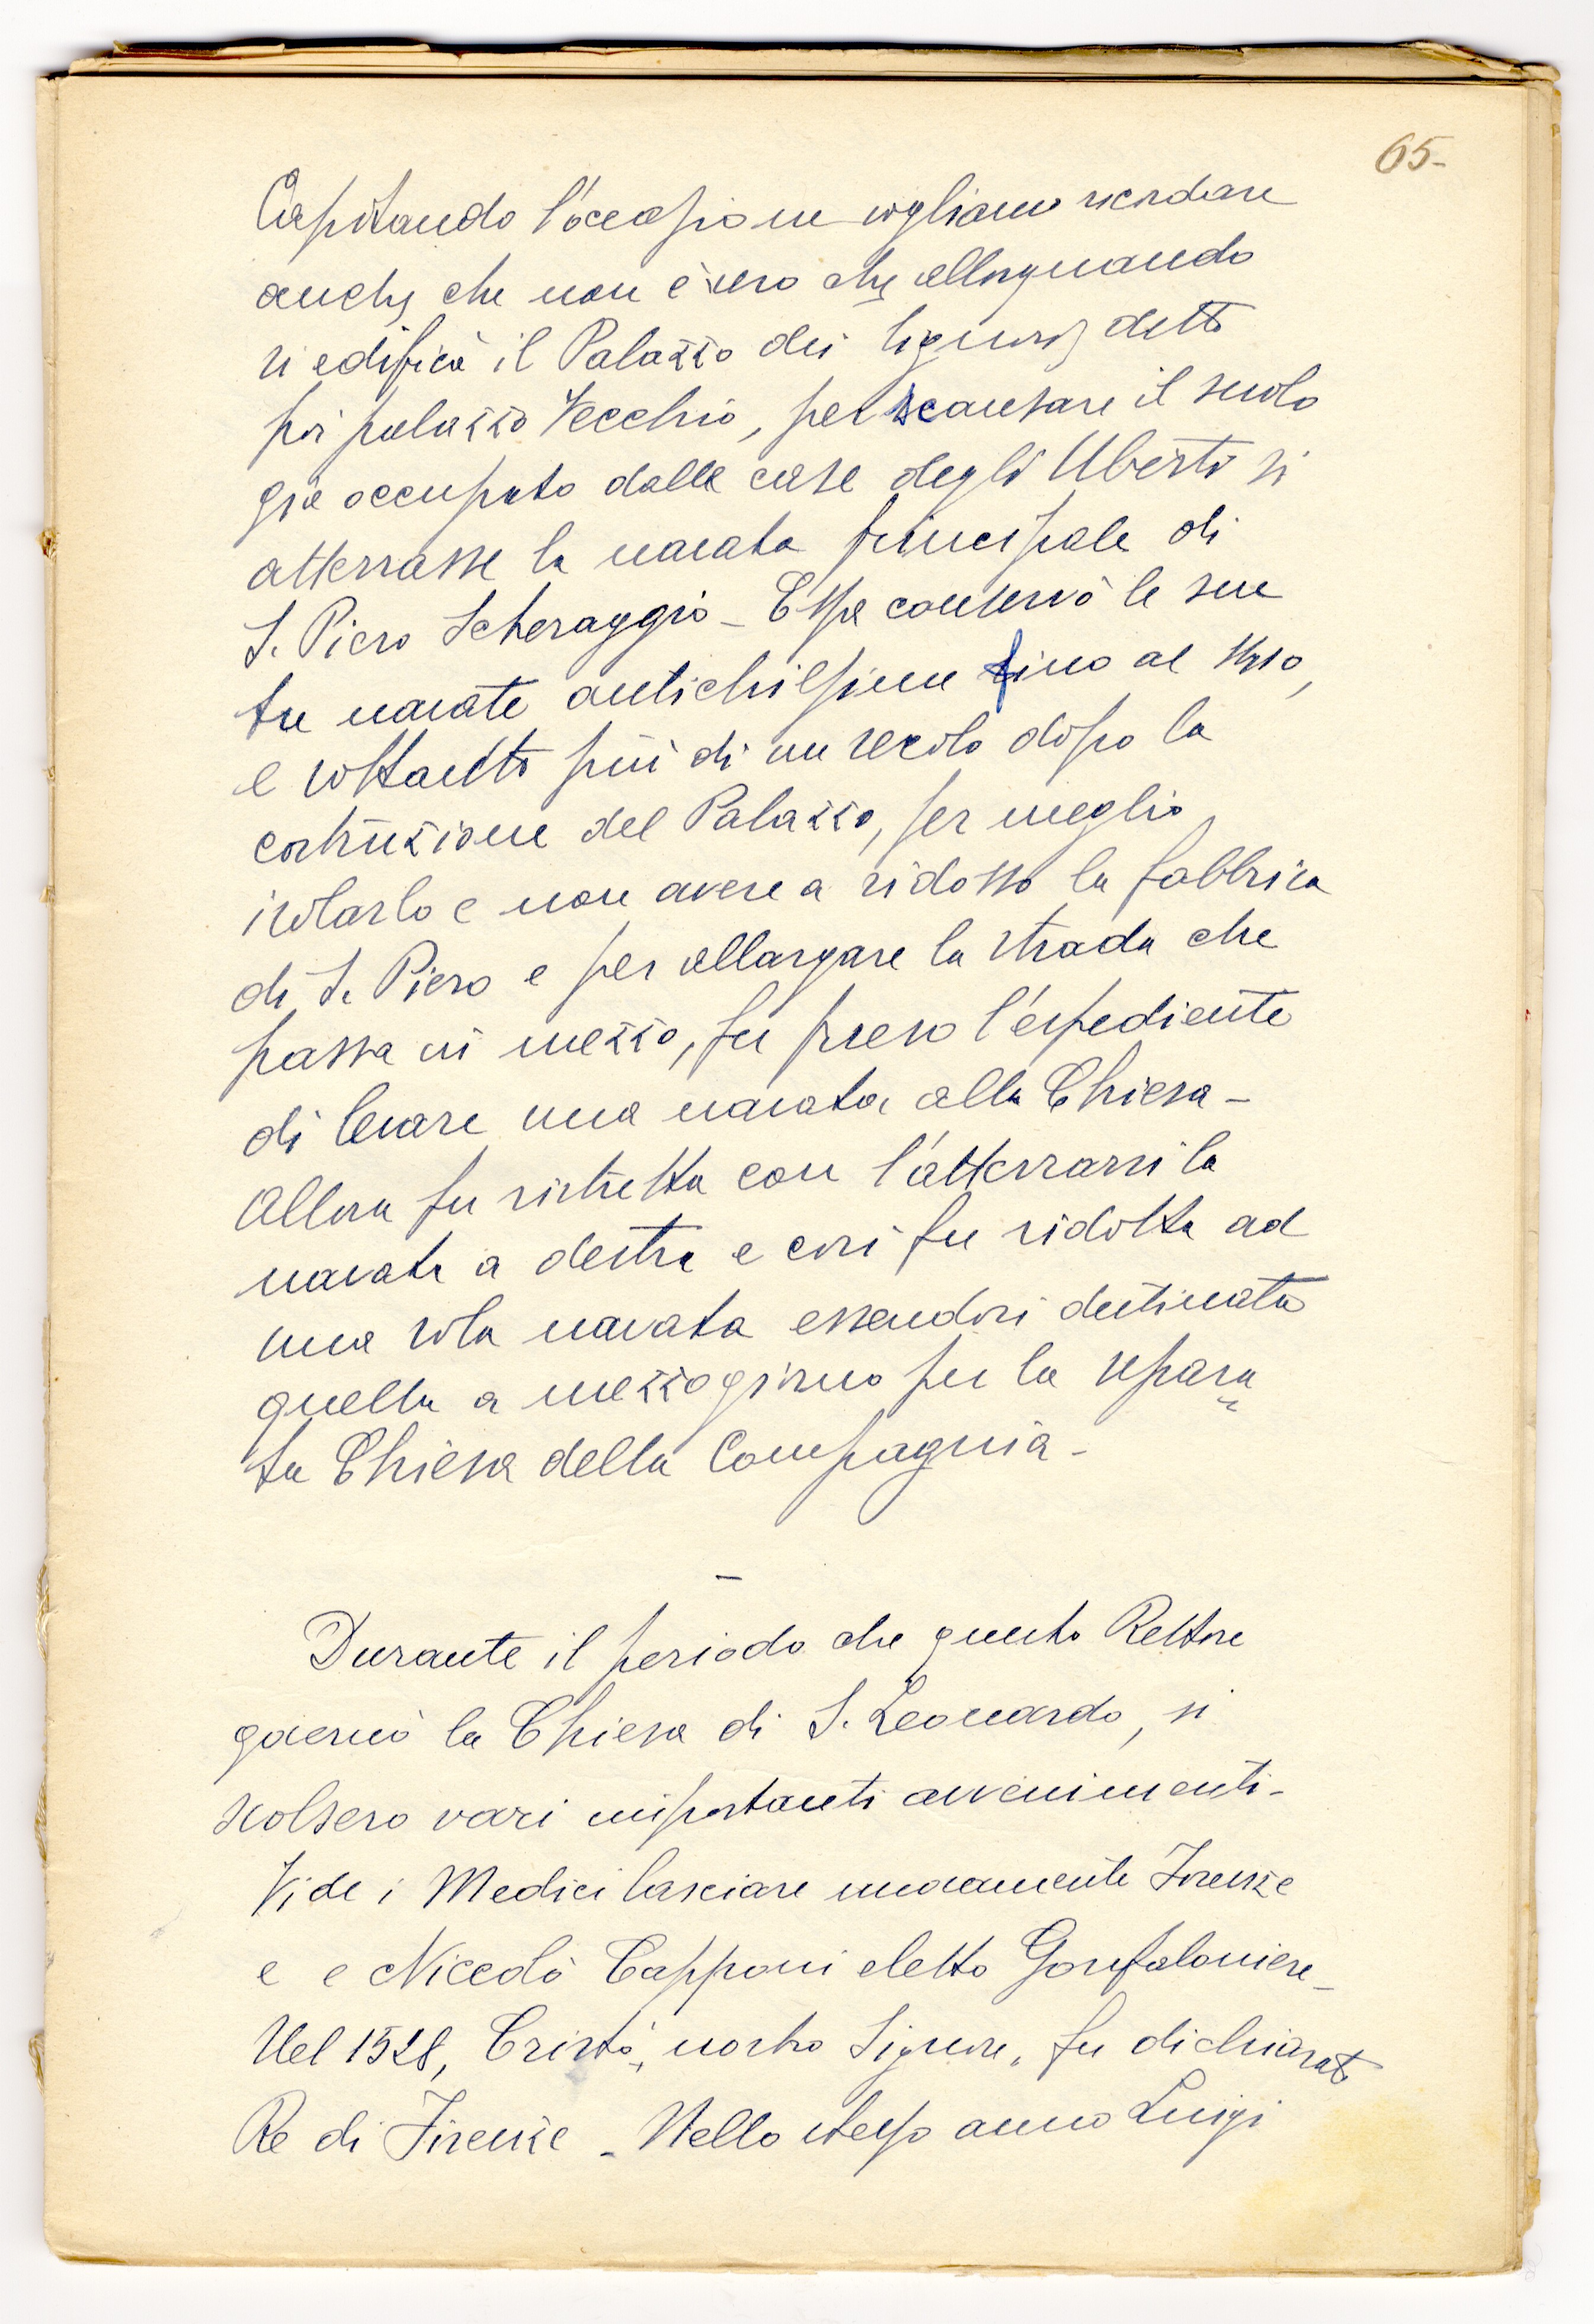 65-
Capitando l'occasione vogliamo ricordare
anche che non è vero che allorquando
si edificò il Palazzo dei Signori, detto
poi palazzo Vecchio, per scansare il suolo
già occupato dalle case degli Uberti si
atterrasse la navata principale di
S. Piero Scheraggio - Essa conservò le sue
tre navate antichissime fino al 1410,
e soltanto più di un secolo dopo la
costruzione del Palazzo, per meglio
isolarlo e non avere a ridosso la fabbrica
di S. Piero e per allargare la strada che
passa in mezzo, fu preso l'espediente
di levare una navata alla Chiesa -
Allora fu ristretta con l'atterrarsi la
navata a destra e così fu ridotta ad
una sola navata essendosi destinata
quella a mezzogiorno per la separa
ta Chiesa della Compagnia -
Durante il periodo che questo Rettore
governò la Chiesa di S. Leonardo, si
svolsero vari importanti avvenimenti -
Vide i Medici lasciare nuovamente Firenze
e e Niccolò Capponi eletto Gonfaloniere -
Nel 1528, Cristo, nostro Signore, fu dichiarato
Re di Firenze - Nello stesso anno Luigi